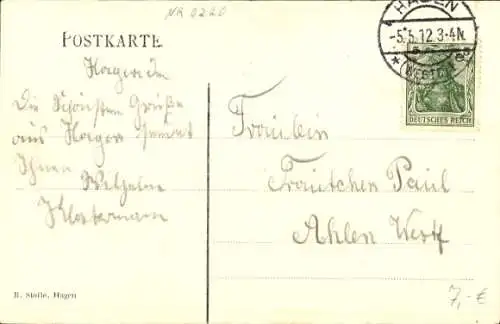 NR 0220
HAGEN
-5.5.12.3-4N.
(WESTF.)
DEUTSCHES REICH
POSTKARTE.
Hagen
Die Schönsten Grüße
aus Hagen sendet
Ihnen
Wilhelm
Klostermann
Fräulein
Frautchen Paul
Ahlen Westf
R. Stolle, Hagen
7,-€